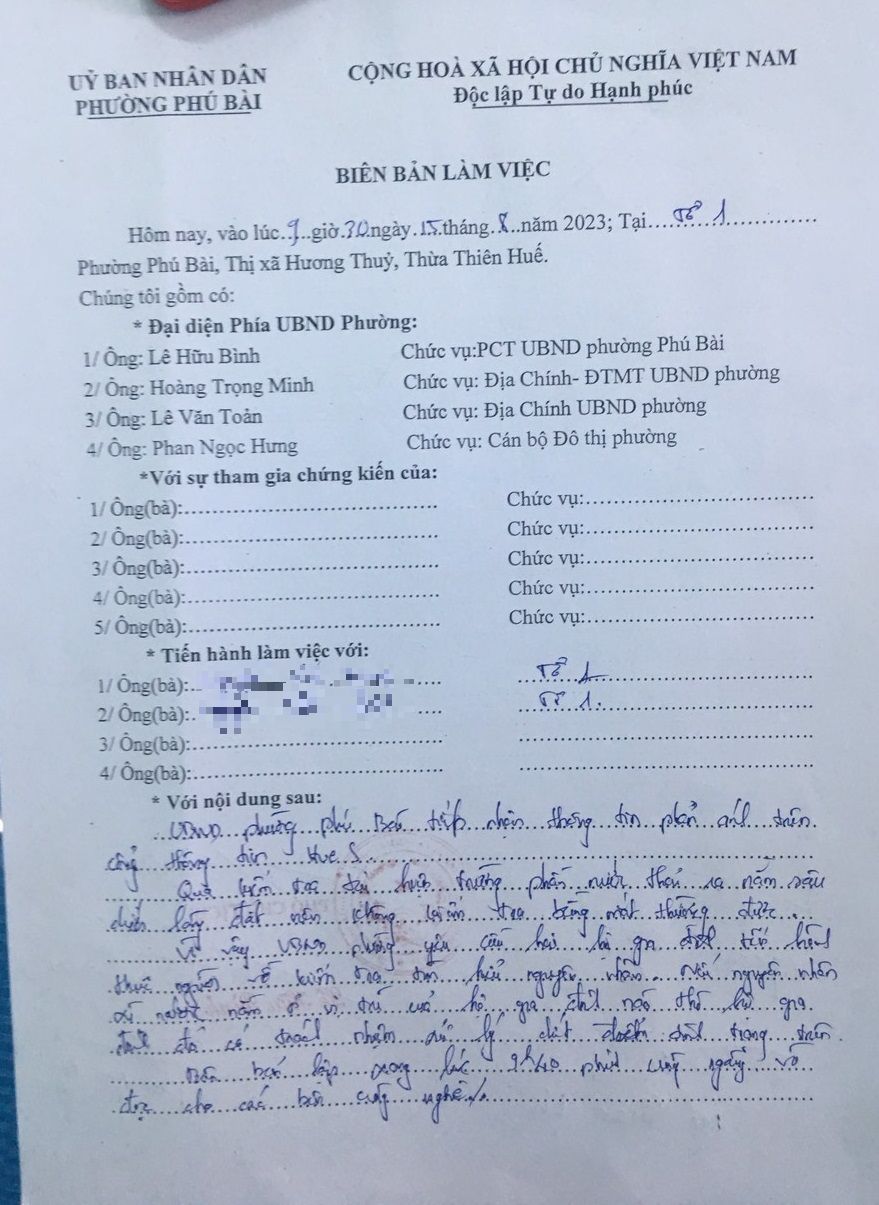 UỶ BAN NHÂN DÂN
PHƯỜNG PHÚ BÀI
CỘNG HOÀ XÃ HỘI CHỦ NGHĨA VIỆT NAM
Độc lập Tự do Hạnh phúc
BIÊN BẢN LÀM VIỆC
Hôm nay, vào lúc.9..giờ.30.ngày.15.tháng.8..năm 2023; Tại....Tổ 1..............
Phường Phú Bài, Thị xã Hương Thuỷ, Thừa Thiên Huế.
Chúng tôi gồm có:
* Đại diện Phía UBND Phường:
1/ Ông: Lê Hữu Bình Chức vụ:PCT UBND phường Phú Bài
2/ Ông: Hoàng Trọng Minh Chức vụ: Địa Chính- ĐTMT UBND phường
3/ Ông: Lê Văn Toản Chức vụ: Địa Chính UBND phường
4/ Ông: Phan Ngọc Hưng Chức vụ: Cán bộ Đô thị phường
*Với sự tham gia chứng kiến của:
1/ Ông(bà):.......................................... Chức vụ:......................................
2/ Ông(bà):.......................................... Chức vụ:......................................
3/ Ông(bà):.......................................... Chức vụ:......................................
4/ Ông(bà):.......................................... Chức vụ:......................................
5/ Ông(bà):.......................................... Chức vụ:......................................
* Tiến hành làm việc với:
1/ Ông(bà):.. ....Tổ 1......
2/ Ông(bà):. ....Tổ 1......
3/ Ông(bà):..........................................
4/ Ông(bà):..........................................
* Với nội dung sau:
UBND phường phú Bài tiếp nhận thông tin phản ánh trên
cổng thông tin Hue S
Qua kiểm tra tại hiện trường phần nước thải ra nằm sâu
dưới lòng đất nên không kiểm tra bằng mắt thường được
Vì vậy UBND phường yêu cầu hai hộ gia đình tiến hành
thuê người về kiểm tra tìm hiểu nguyên nhân nếu nguyên nhân
nước nằm ở vị trí của hộ gia đình nào thì hộ gia
đình đó có trách nhiệm xử lý dứt điểm tình trạng trên
Biên bản lập xong lúc 9h40 phút cùng ngày và
đọc cho các bên cùng nghe./.